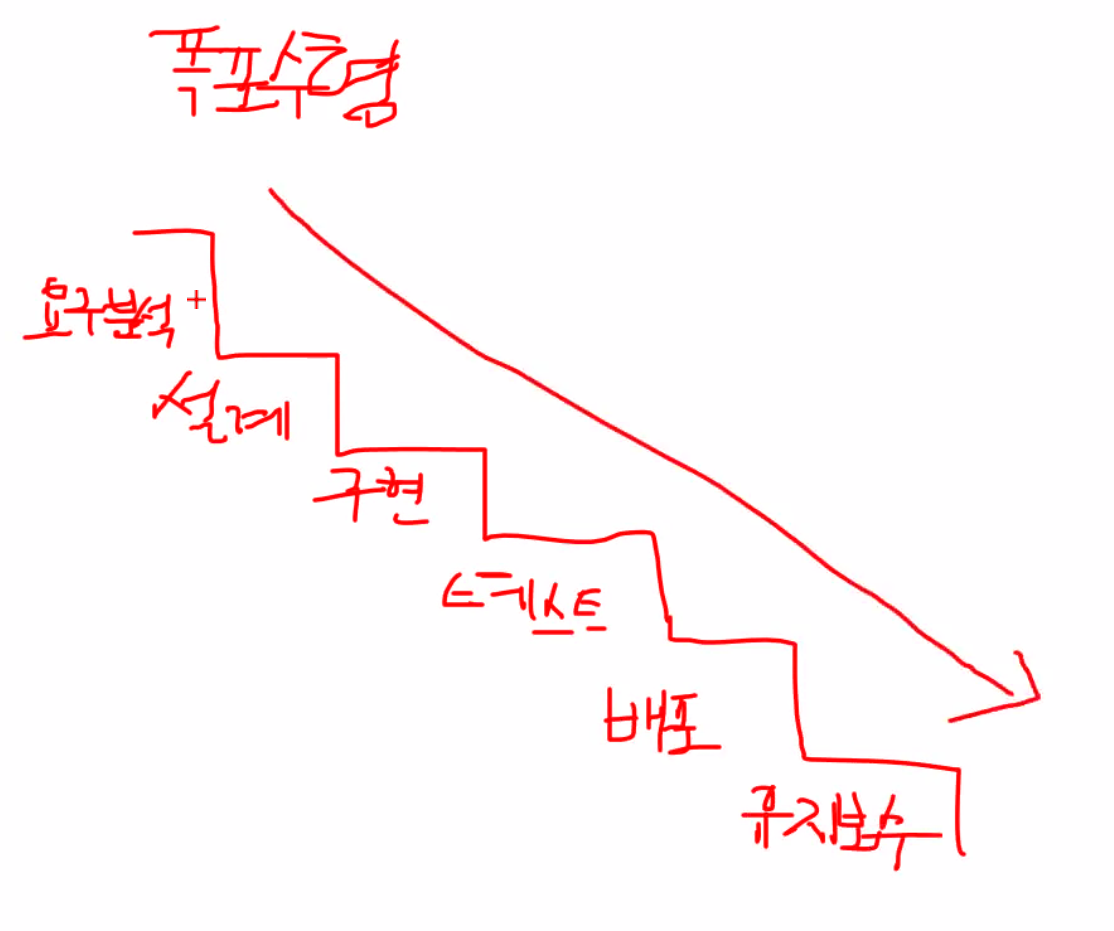 폭포수형
요구분석
설계
구현
테스트
배포
유지보수